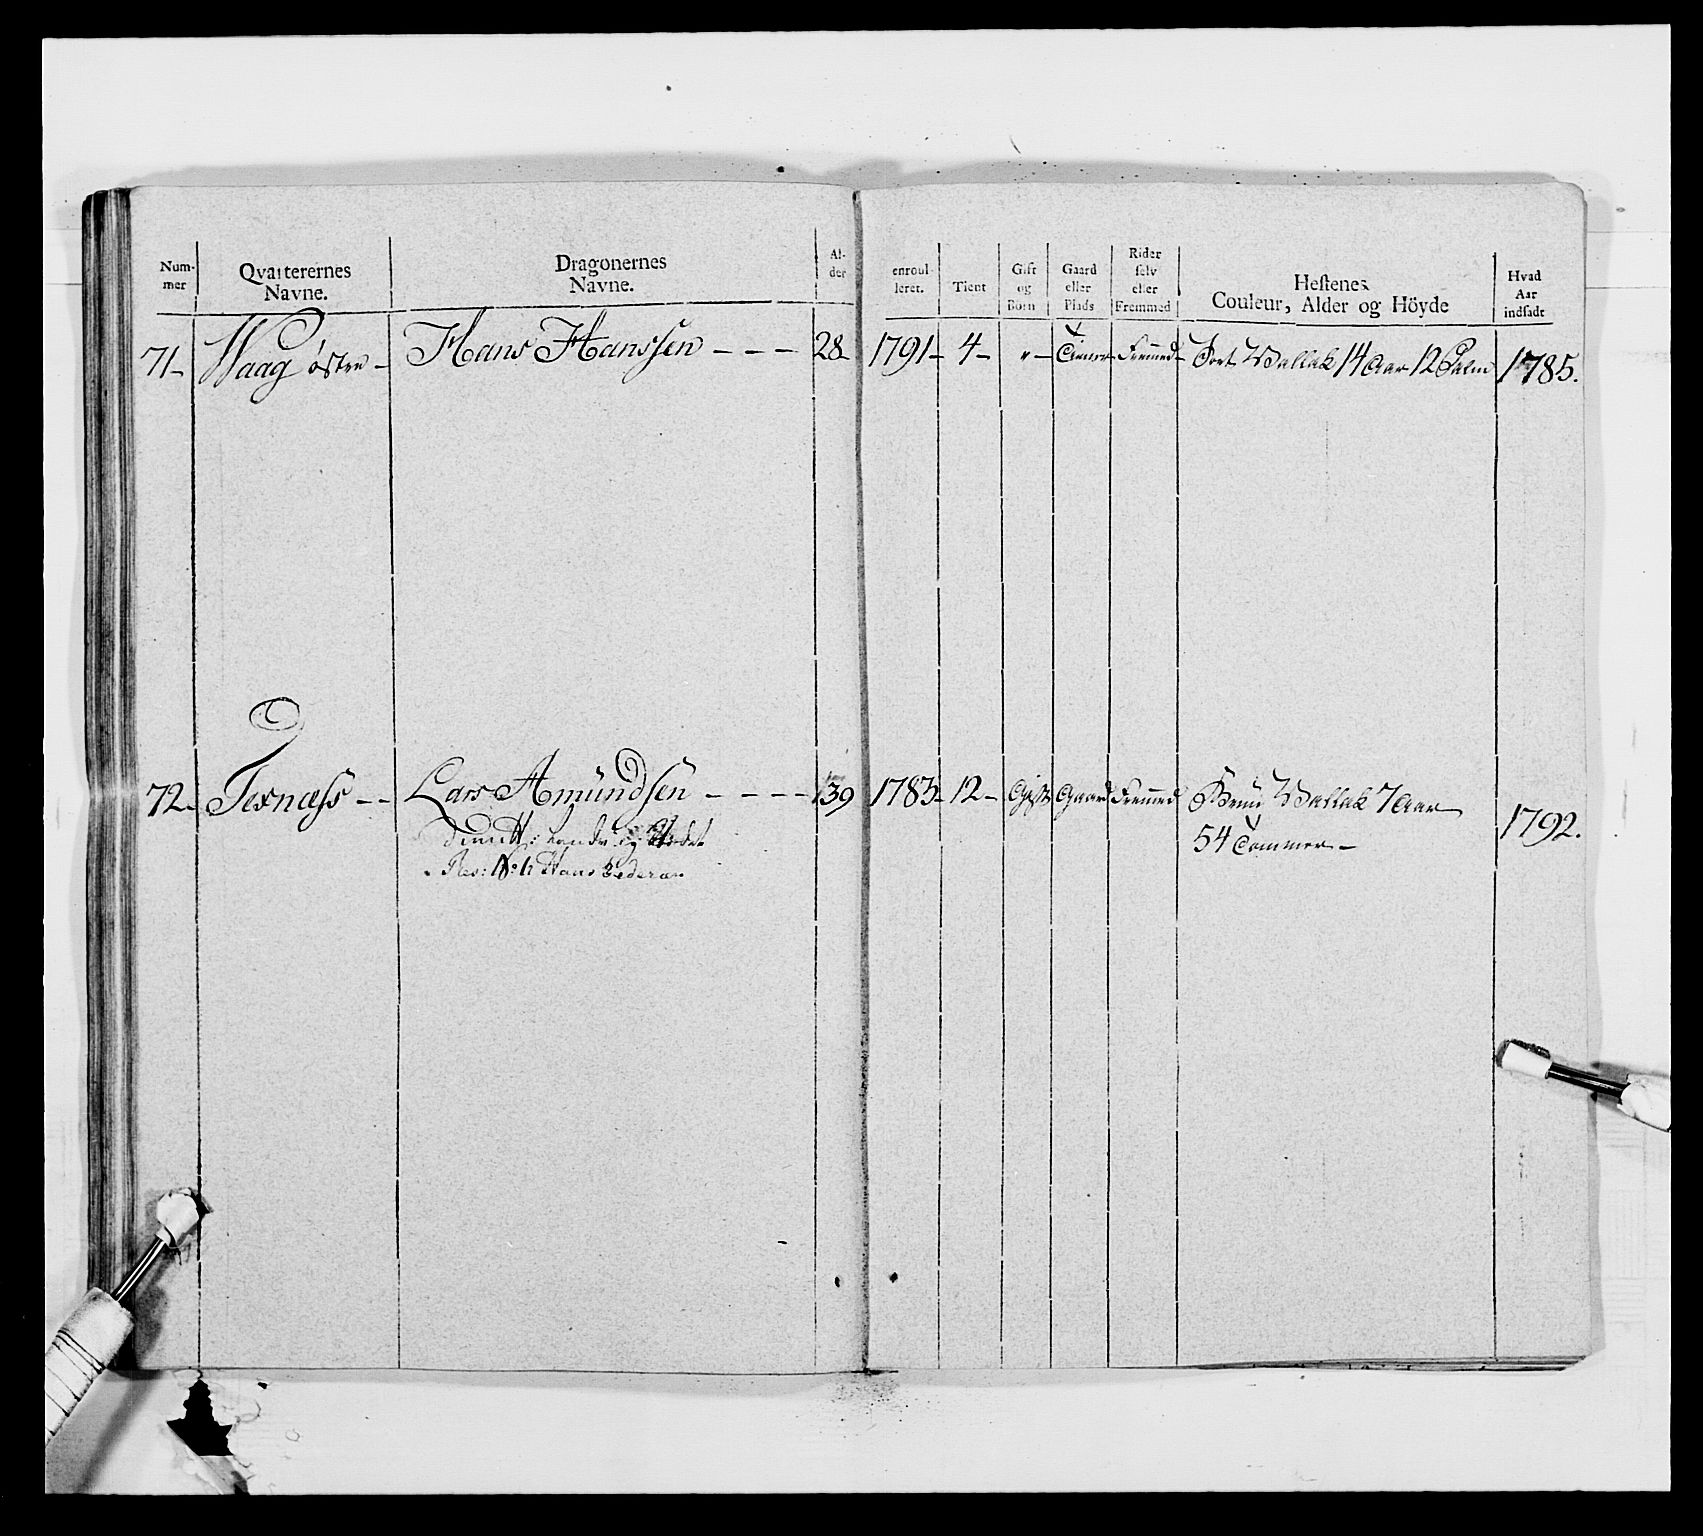 Num-
mer
Qvarterernes
Navne.
Dragonernes
Navne.
Al-
der
enroul-
leret.
Tient
Gift
og
Börn
Gaard
eller
Plads
Rider
selv
eller
Fremmed
Hestenes
Couleur, Alder og Höyde
Hvad
Aar
indsadt
71- Waag østre - Hans Hanssen - - - 28- 1791- 4- Tiener Fremmed- Sort Wallak 14 Aar 12 Palm 1785.
72- Texnæss - - Lars Amundsen - - - - 39 1783- 12- Gift Gaard Fremmed Brun Wallak 7 Aar 1792.
54 Tommer -
Res: No Hans Pedersen